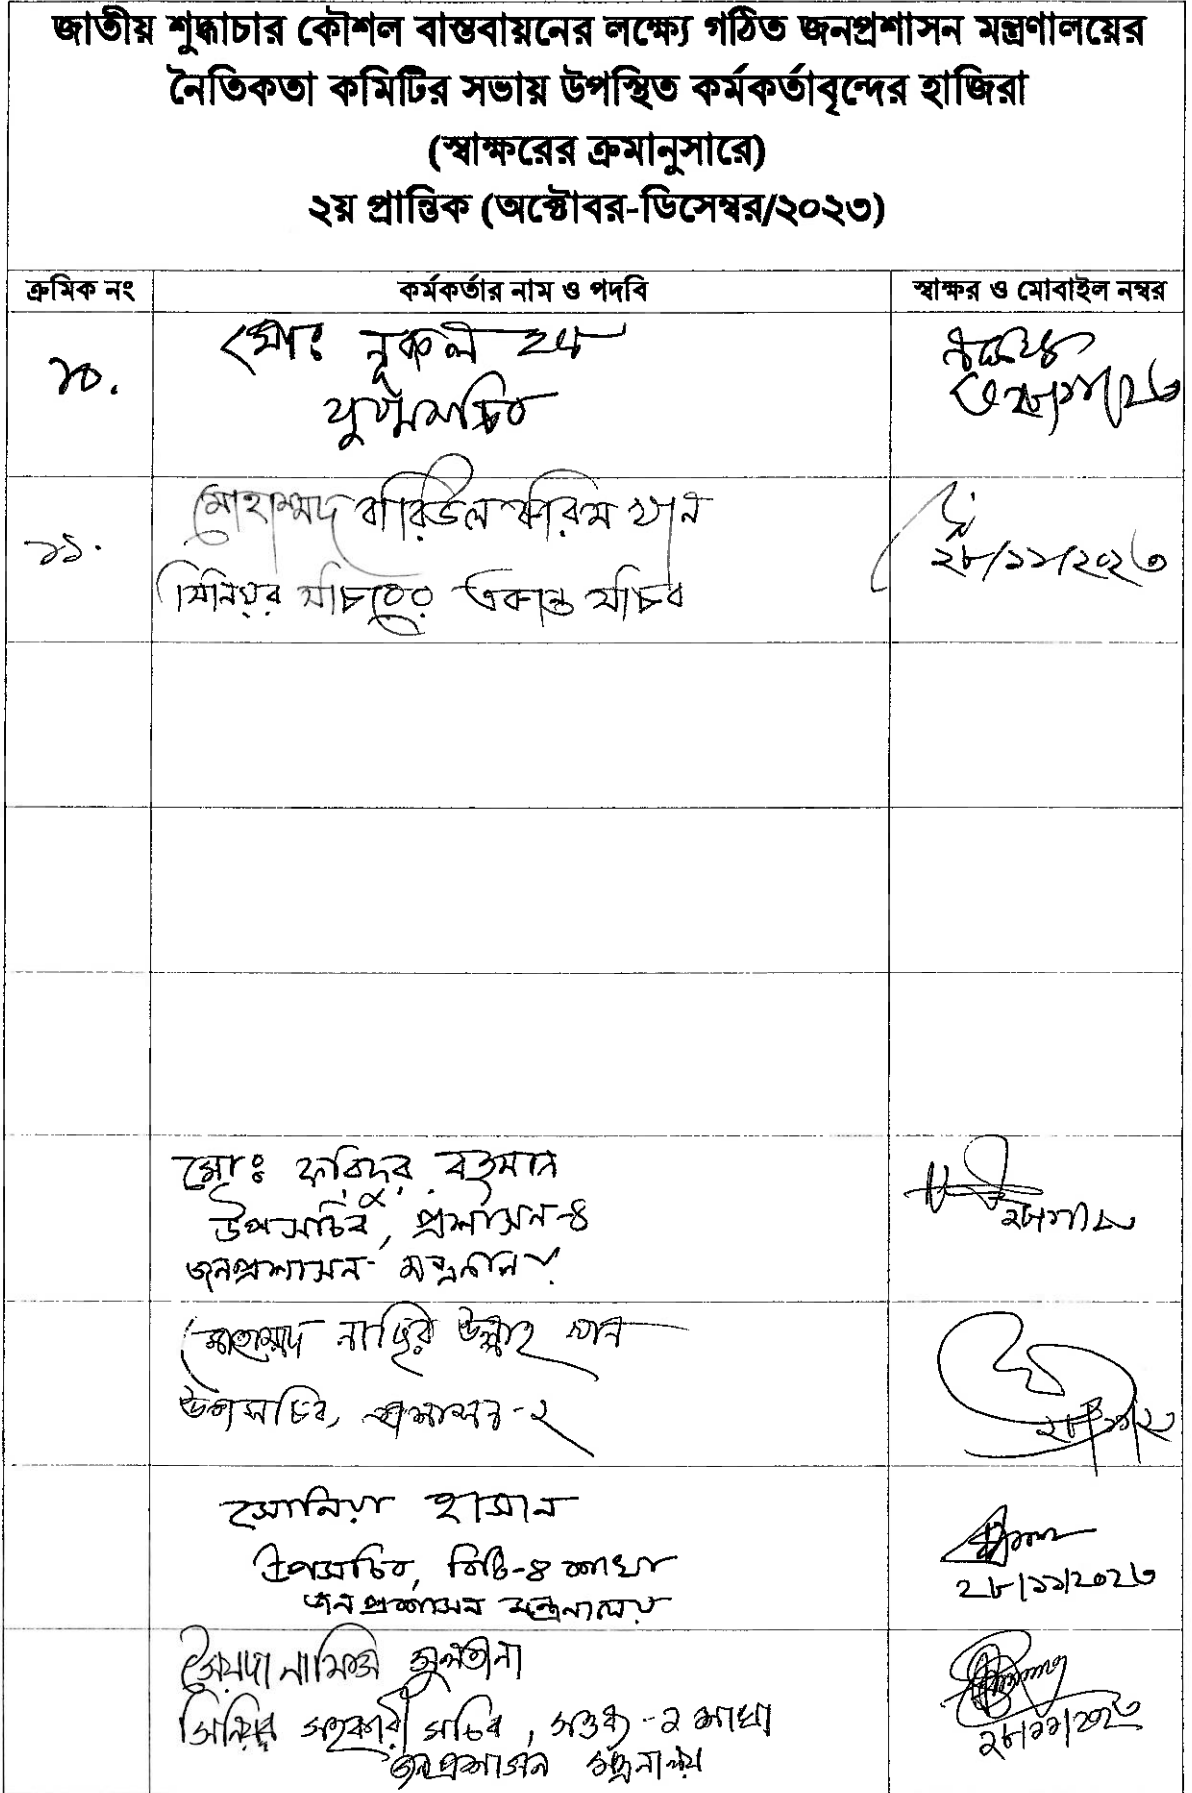 জাতীয় শুদ্ধাচার কৌশল বাস্তবায়নের লক্ষ্যে গঠিত জনপ্রশাসন মন্ত্রণালয়ের
নৈতিকতা কমিটির সভায় উপস্থিত কর্মকর্তাবৃন্দের হাজিরা
(স্বাক্ষরের ক্রমানুসারে)
২য় প্রান্তিক (অক্টোবর-ডিসেম্বর/২০২৩)
ক্রমিক নং কর্মকর্তার নাম ও পদবি স্বাক্ষর ও মোবাইল নম্বর
১০. মোঃ নূরুল হক
যুগ্মসচিব
১১. মোহাম্মদ বারিউল করিম খান
সিনিয়র সচিবের একান্ত সচিব ২৮/১১/২০২৩
মোঃ ফরিদুর রহমান
উপসচিব, প্রশাসন-৪
জনপ্রশাসন মন্ত্রণালয়
মোহাম্মদ নাছির উল্লাহ খান
উপসচিব, প্রশাসন-২
সোনিয়া হাসান
উপসচিব, বিটি-৪ শাখা
জনপ্রশাসন মন্ত্রনালয় ২৮/১১/২০২৩
সৈয়দা নাফিসা সুলতানা
সিনিয়র সহকারী সচিব, সওব্য-২ শাখা
জনপ্রশাসন মন্ত্রনালয়